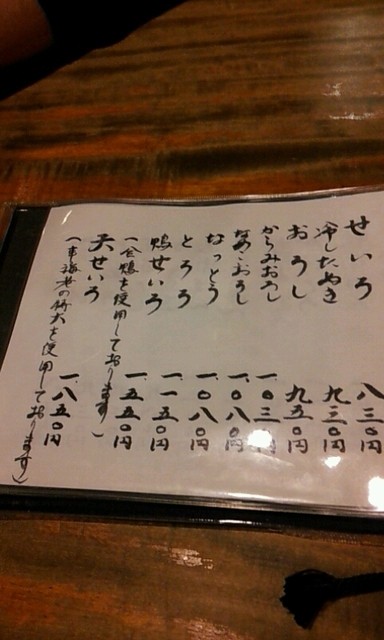 せいろ 八三〇円
冷したぬき 九三〇円
おろし 九五〇円
からみおろし 一、〇三〇円
なめこおろし 一、〇八〇円
なっとう 一、〇八〇円
とろろ 一、一五〇円
鴨せいろ 一、五五〇円
(合鴨を使用しております)
天せいろ 一、八五〇円
(車海老の を使用しております)